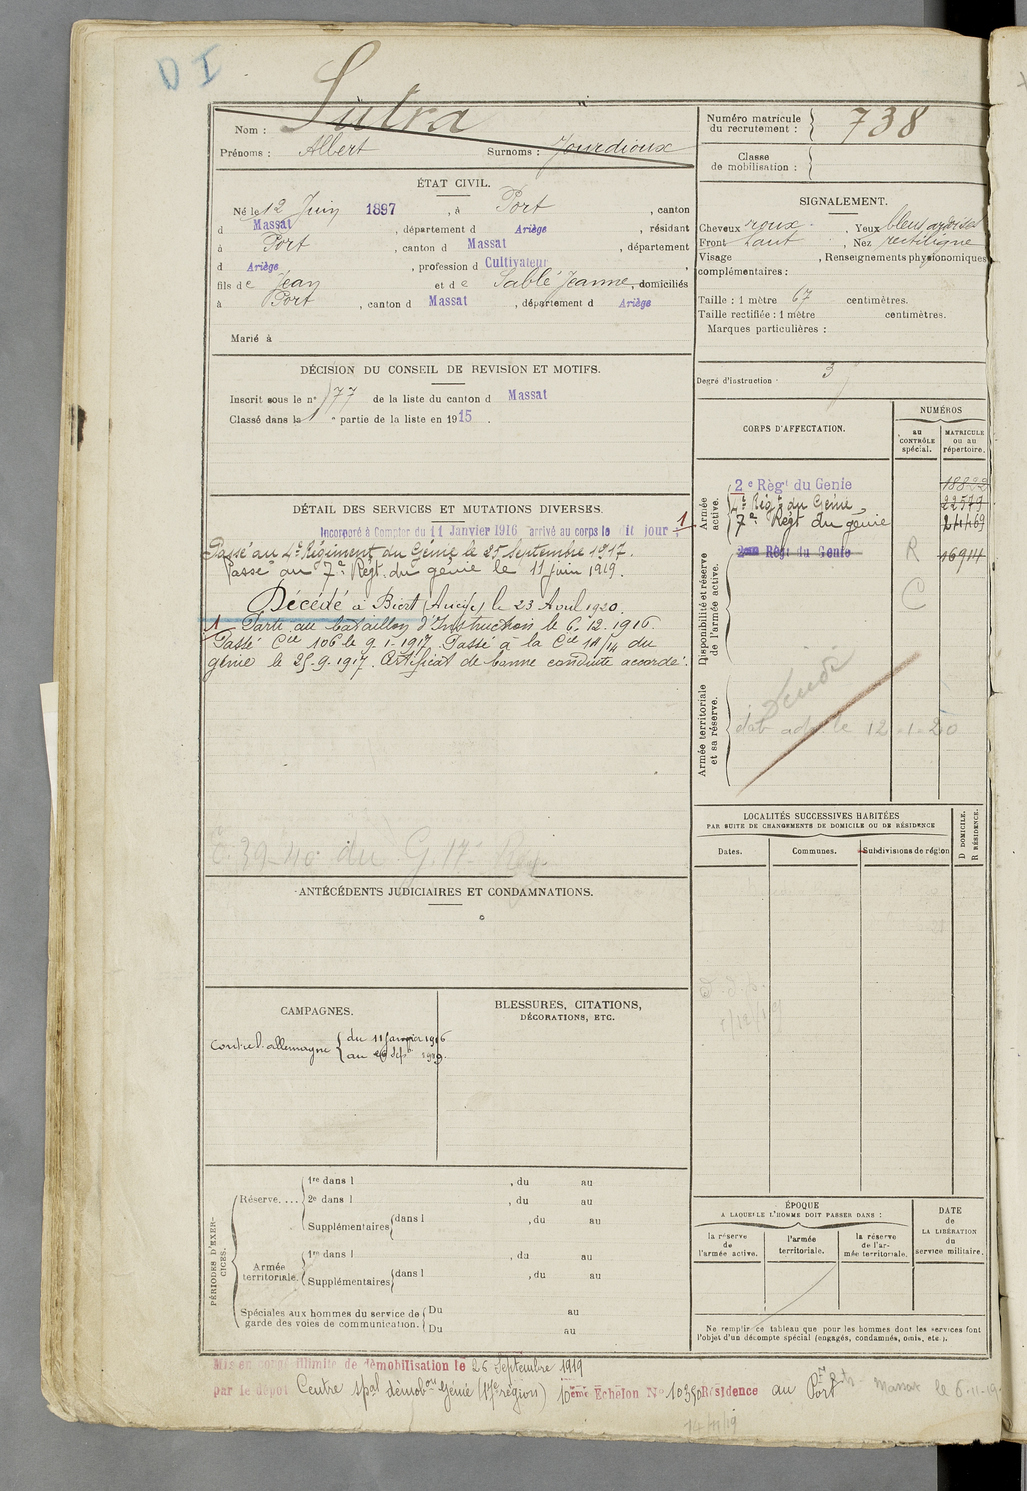 D I
Nom : Sutra
Prénoms : Albert Surnoms : Jourdioux
Numéro matricule du recrutement : 738
Classe de mobilisation :
ÉTAT CIVIL.
Né le 12 Juin 1897, à Port, canton
d Massat, département d Ariège, résidant
à Port, canton d Massat, département
d Ariège, profession d Cultivateur
fils de Jean et de Sablé Jeanne, domiciliés
à Port, canton d Massat, département d Ariège
Marié à
SIGNALEMENT.
Cheveux roux. Yeux bleus ardoisé
Front haut, Nez rectiligne
Visage , Renseignements physionomiques
complémentaires :
Taille : 1 mètre 67 centimètres.
Taille rectifiée : 1 mètre centimètres.
Marques particulières :
Degré d'instruction : 3
DÉCISION DU CONSEIL DE REVISION ET MOTIFS.
Inscrit sous le n° 77 de la liste du canton d Massat
Classé dans la 1e partie de la liste en 1915.
CORPS D'AFFECTATION.
NUMÉROS
au CONTRÔLE spécial.
MATRICULE ou au répertoire.
Armée active.
2e Règt du Genie 18822
4e Régt du Génie 22579
7e Régt du génie 24469
Disponibilité et réserve de l'armée active.
2eme Règt du Genie 16914
R
C
Armée territoriale et sa réserve.
le 12-1-20
DÉTAIL DES SERVICES ET MUTATIONS DIVERSES.
Incorporé à Compter du 11 Janvier 1916 arrivé au corps le dit jour 1
Passé au 4e Régiment du Génie le 25 Septembre 1917.
Passé au 7e Régt. du génie le 11 juin 1919.
Décédé à Biert (Ariège) le 23 Avril 1920.
1 - Parti au bataillon d'Instruction le 6.12.1916.
Passé Cie 106 le 9-1-1917. Passé à la Cie 14/14 du
génie le 25-9-1917. Certificat de bonne conduite accordé.
LOCALITÉS SUCCESSIVES HABITÉES
PAR SUITE DE CHANGEMENTS DE DOMICILE OU DE RÉSIDENCE
Dates. Communes. Subdivisions de région
D DOMICILE.
R RÉSIDENCE.
ANTÉCÉDENTS JUDICIAIRES ET CONDAMNATIONS.
CAMPAGNES.
Contre l'allemagne { du 11 Janvier 1916
au 26 Sepe 1919.
BLESSURES, CITATIONS,
DÉCORATIONS, ETC.
PÉRIODES D'EXERCICES.
Réserve. ... 1re dans l , du au
2e dans l , du au
Supplémentaires dans l , du au
Armée territoriale. 1re dans l , du au
Supplémentaires dans l , du au
Spéciales aux hommes du service de garde des voies de communication. Du au
Du au
ÉPOQUE
A LAQUELLE L'HOMME DOIT PASSER DANS :
la réserve de l'armée active.
l'armée territoriale.
la réserve de l'armée territoriale.
DATE de LA LIBÉRATION du service militaire.
Ne remplir ce tableau que pour les hommes dont les services font
l'objet d'un décompte spécial (engagés, condamnés, omis, etc.).
Mis en congé illimité de démobilisation le 26 Septembre 1919
par le dépôt Centre spal démobon Génie (17e région) 10ème Echelon No 10390 Résidence au Port Massat le 6-11-19
14/11/19